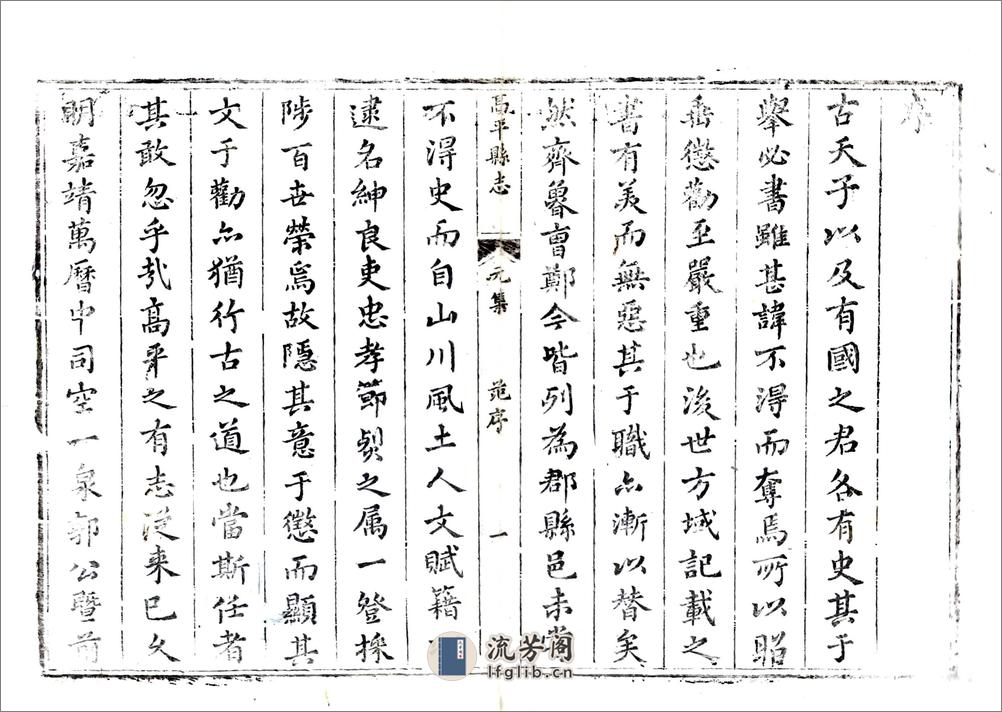 序
古天子以及有國之君各有史其于
舉必書雖甚諱不得而奪焉所以昭
垂懲勸至嚴重也後世方域記載之
書有美而無惡其于職亦漸以替矣
然齊魯曹鄭今皆列為郡縣邑未嘗
高平縣志
元集
范序
一
不得史而自山川風土人文賦籍
逮名紳良吏忠孝節貞之属一登採
陟百世榮焉故隠其意于懲而顯其
文于勸亦猶行古之道也當斯任者
其敢忽乎哉高平之有志從来已久
明嘉靖萬曆中司空一泉郭公暨前
流芳阁
lfglib.cn